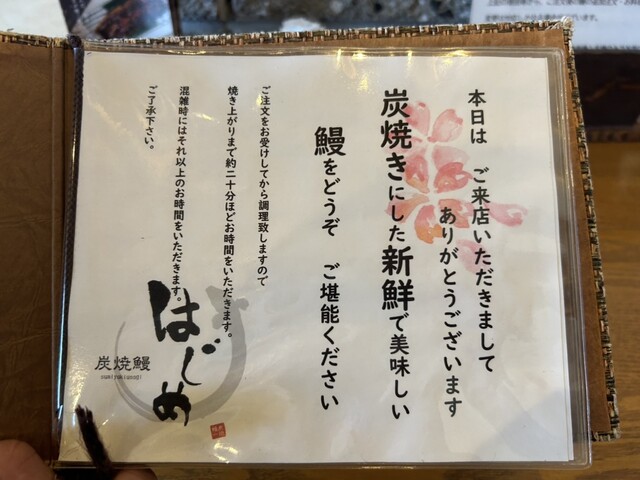 本日は ご来店いただきまして
ありがとうございます
炭焼きにした新鮮で美味しい
鰻をどうぞ ご堪能ください
ご注文をお受けしてから調理致しますので
焼き上がりまで約二十分ほどお時間をいただきます。
混雑時にはそれ以上のお時間をいただきます。
ご了承下さい。
はじめ
炭焼鰻
sumiyakiunagi